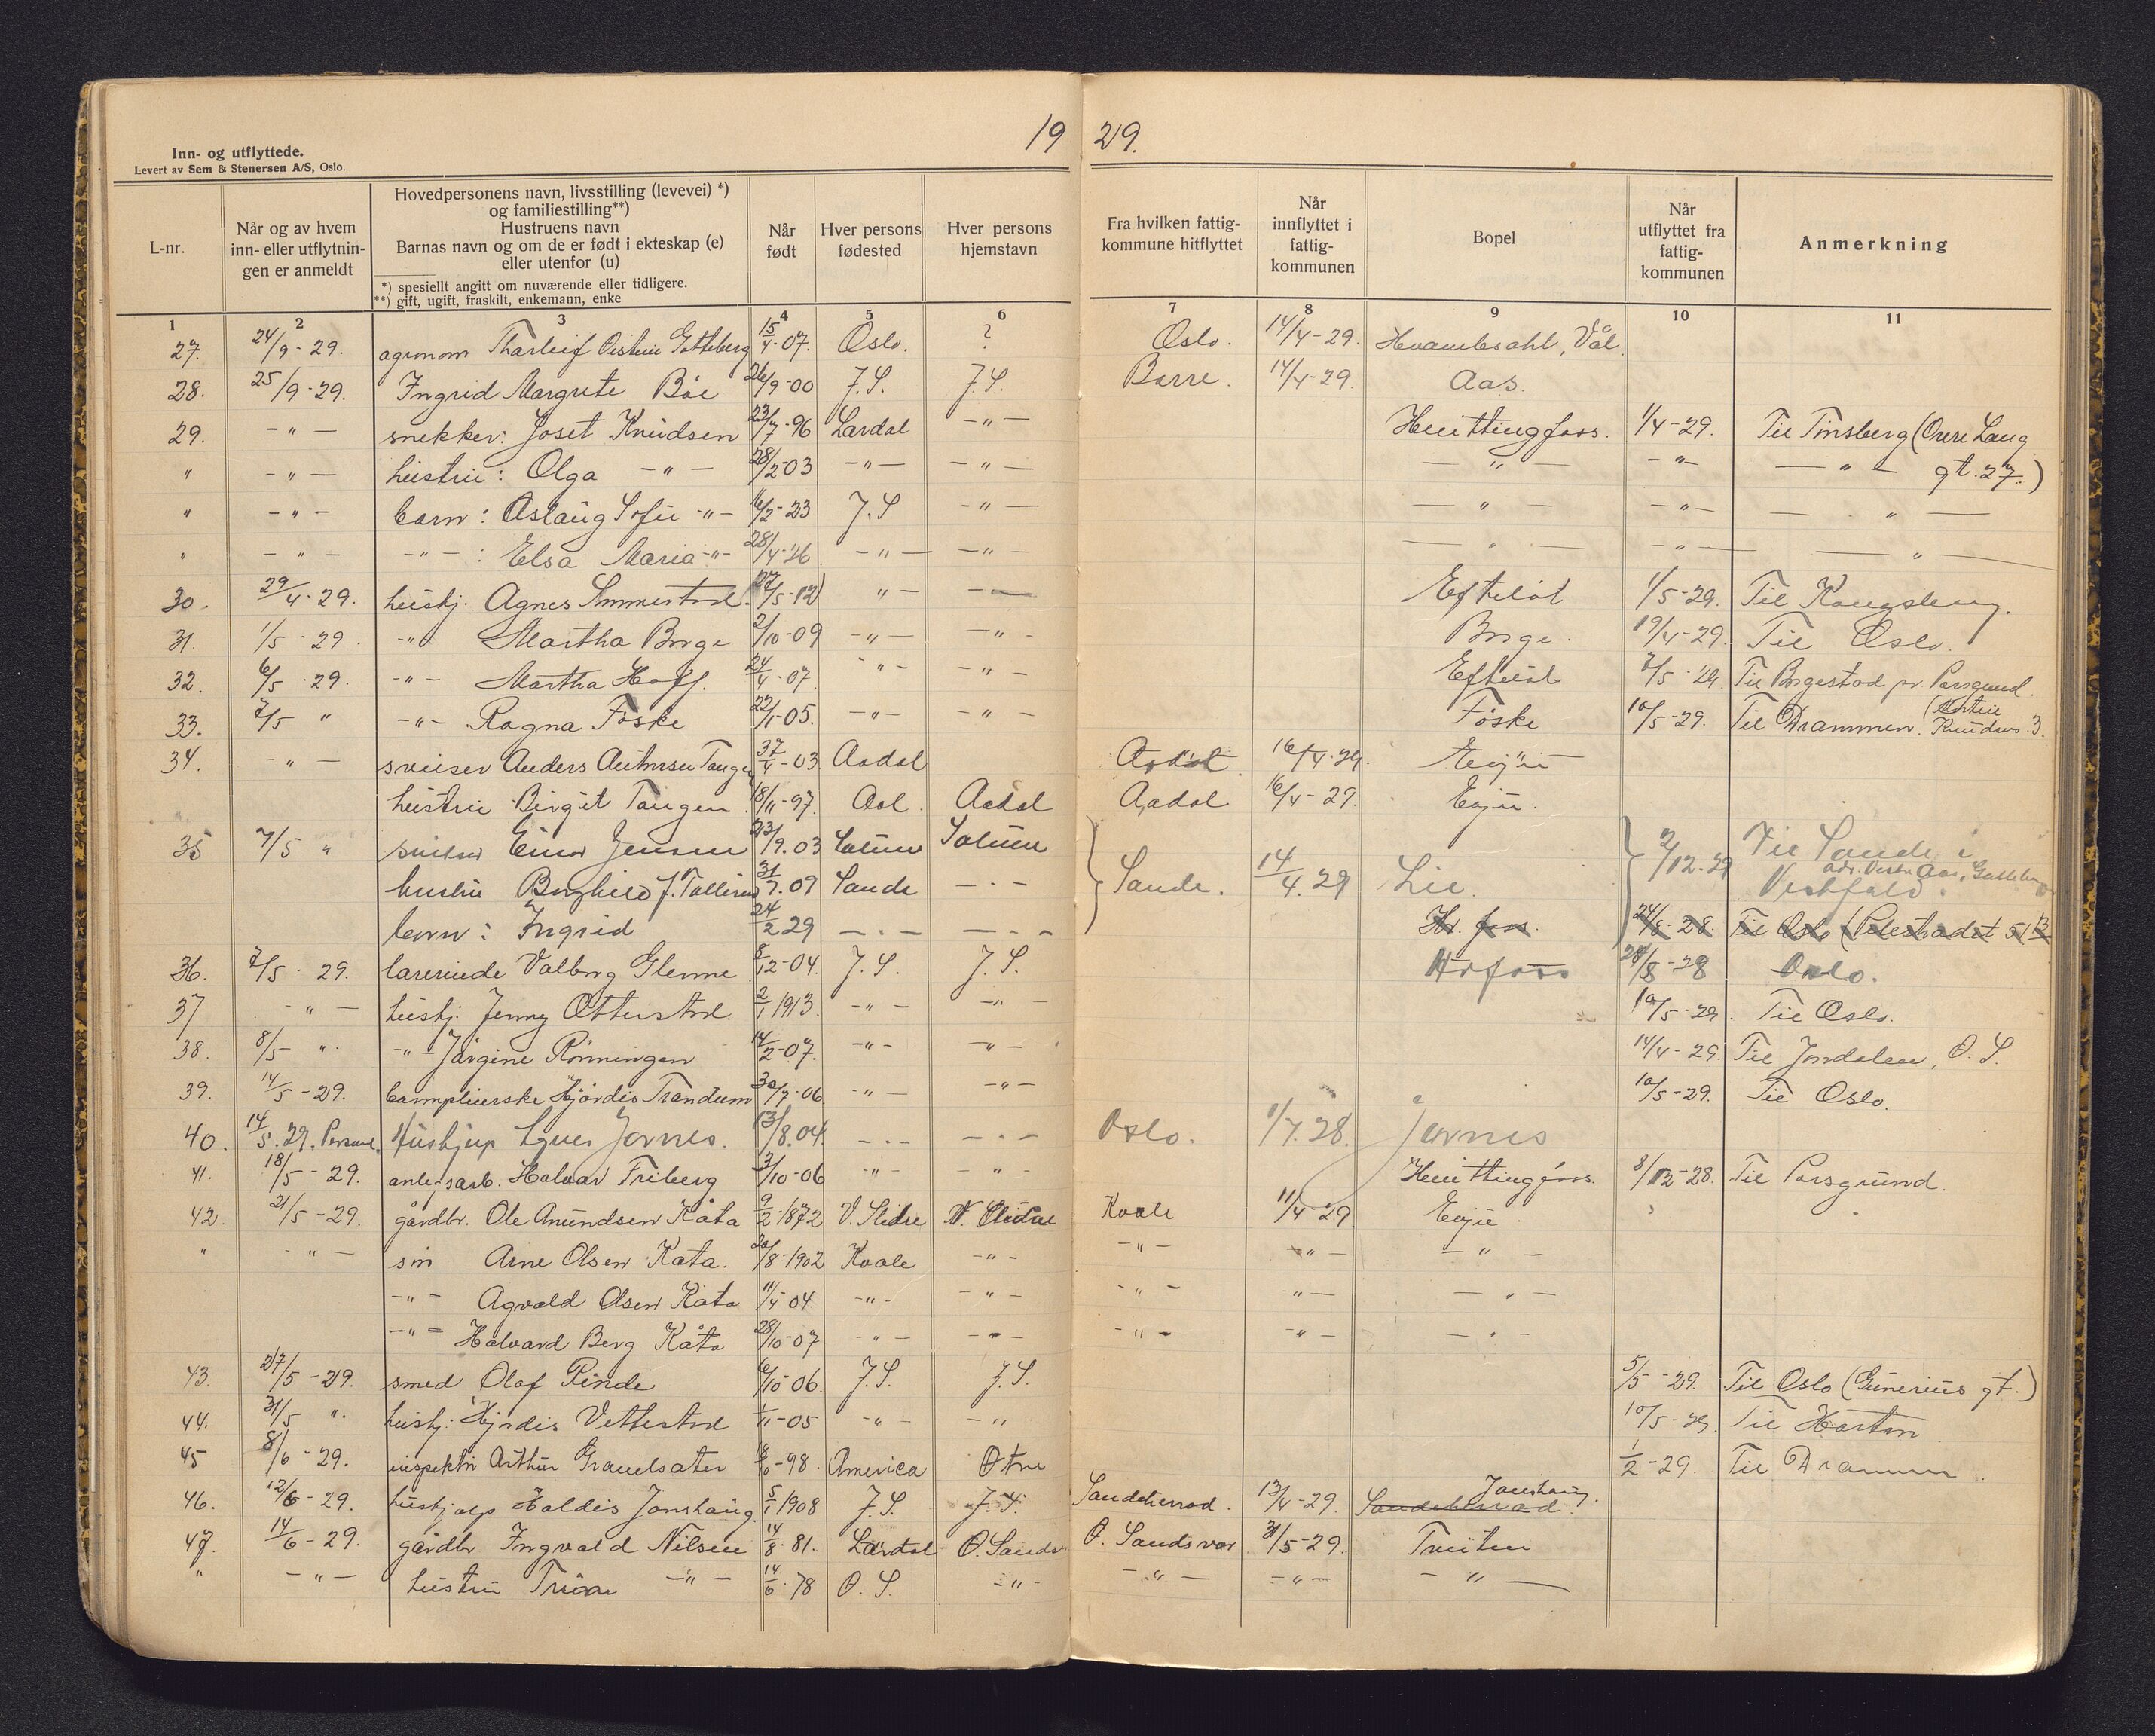 19 29.
Inn- og utflyttede.
Levert av Sem & Stenersen A/S, Oslo.
L-nr.
Når og av hvem inn- eller utflytnin- gen er anmeldt
Hovedpersonens navn, livsstilling (levevei) *)
og familiestilling**)
Hustruens navn
Barnas navn og om de er født i ekteskap (e)
eller utenfor (u)
*) spesiellt angitt om nuværende eller tidligere.
**) gift, ugift, fraskilt, enkemann, enke
Når født
Hver persons fødested
Hver persons hjemstavn
Fra hvilken fattig- kommune hitflyttet
Når innflyttet i fattig- kommunen
Bopel
Når utflyttet fra fattig- kommunen
Anmerkning
1 2 3 4 5 6 7 8 9 10 11
27. 24/9-29. agronom 15/4-07. Oslo. ? Oslo. 14/4-29.
28. 25/9-29. Ingrid Margrete Böe 26/9-00 J.S. J.S. Borre. 14/4-29. Aas.
29. -"- snekker: Josef Knudsen 23/7-96 Lardal -"- Hvittingfoss. 1/4-29. Til Tønsberg (Øvre Lang
" -"- hustru: Olga -"- 28/2-03 -"- -"- -"- -"- -"- gt. 27.)
" -"- barn: Aslaug Sofie -"- 16/2-23 J.S -"- -"- -"- -"-
" -"- -"-: Elsa Maria -"- 28/4-26 -"- -"- -"- -"- -"-
30. 29/4-29. hushj. Agnes 27/5-12 "- -"- Efteløt 1/5-29. Til Kongsberg.
31. 1/5-29. -"- Martha Borge 2/10-09 -"- -"- Borge. 19/4-29. Til Oslo.
32. 6/5-29. -"- Martha Hoff. 24/4-07. -"- -"- Efteløt 7/5-29. Til Borgestad pr. Porsgrund.
33. 7/5 " -"- Ragna Föske 22/1-05. -"- -"- Föske 10/5-29. Til Drammen. Knudsens. 3.
34. -"- sveiser Anders Tangen -03 Aadal Aadal 16/4-29. Evju
hustru Birgit Tangen. 18/11-97. Aal. Aadal Aadal 16/4-29. Evju.
35 7/5 " sveiser Einar Jensen 23/9.03 Solum Solum Sande. 14/4.29 Lie. 2/12.29 Til Sande i
hustru Borghild f. 31/7.09 Sande -"- Vestfold.
barn: Ingrid 24/2 29 -"- -"- Hv. foss. 24/8-28. Til Oslo (Pilestrædet
36. 7/5-29. lærerinde Valborg Glenne 8/12-04. J.S. J.S. Hvfoss 24/8-28 Oslo.
37 -"- hushj. Jenny Otterstad. 2/1 1913. -"- -"- 10/5-29. Til Oslo.
38. 8/5- ". -"- Jørgine Rönningen 14/2-07. -"- -"- 14/4-29. Til Jondalen, Ø.S.
39. 14/5-29. Hjördis Trandum 30/7-06 -"- -"- 10/5-29. Til Oslo.
40. 14/5.29. Hushjelp Agnes Jornes. 13/8.04. -"- -"- Oslo. 1/7.28. Jornes
41. 18/5-29. anleggsarb. Halvar Friberg 3/10-06 -"- -"- Hvittingfoss. 8/12-28. Til Porsgrund.
42. 21/5-29. gårdbr. Ole Amundsen Kåta 9/2-1872 V. Slidre V. Slidre Kvale 11/4-29 Evju
" -"- sön Arne Olsen Kåta. 20/8-1902 Kvale -"- -"- -"- -"-
-"- Agvald Olsen Kåta 11/4 04. -"- -"- -"- "- -"-
-"- Halvard Berg Kåta 28/10-07 -"- -"- -"- -"- -"-
43. 27/5-29. smed Olaf Rinde 6/10 06. J.S. J.S. 5/5-29. Til Oslo (Gunerius gt.)
44. 31/5 ". hushj: Hjördis Vettestad 1/11-05 -"- -"- 10/5-29. Til Horten
45 8/6-29. inspektør Arthur -98. America 1/2-29. Til Drammen.
46. 12/6-29. hushjelp Haldis Jonshaug. 5/1 1908 J.S. J.S. Sandeherred. 13/4-29. Sandeherred. Jonshaug.
47. 14/6-29. gårdbr Ingvald Nilsen 14/8.81. Lardal Ø. Sandsv Ø. Sandsvær 31/5-29. Tveiten
" -"- hustru 14/6.78 Ø.S. -"- -"- -"- -"-